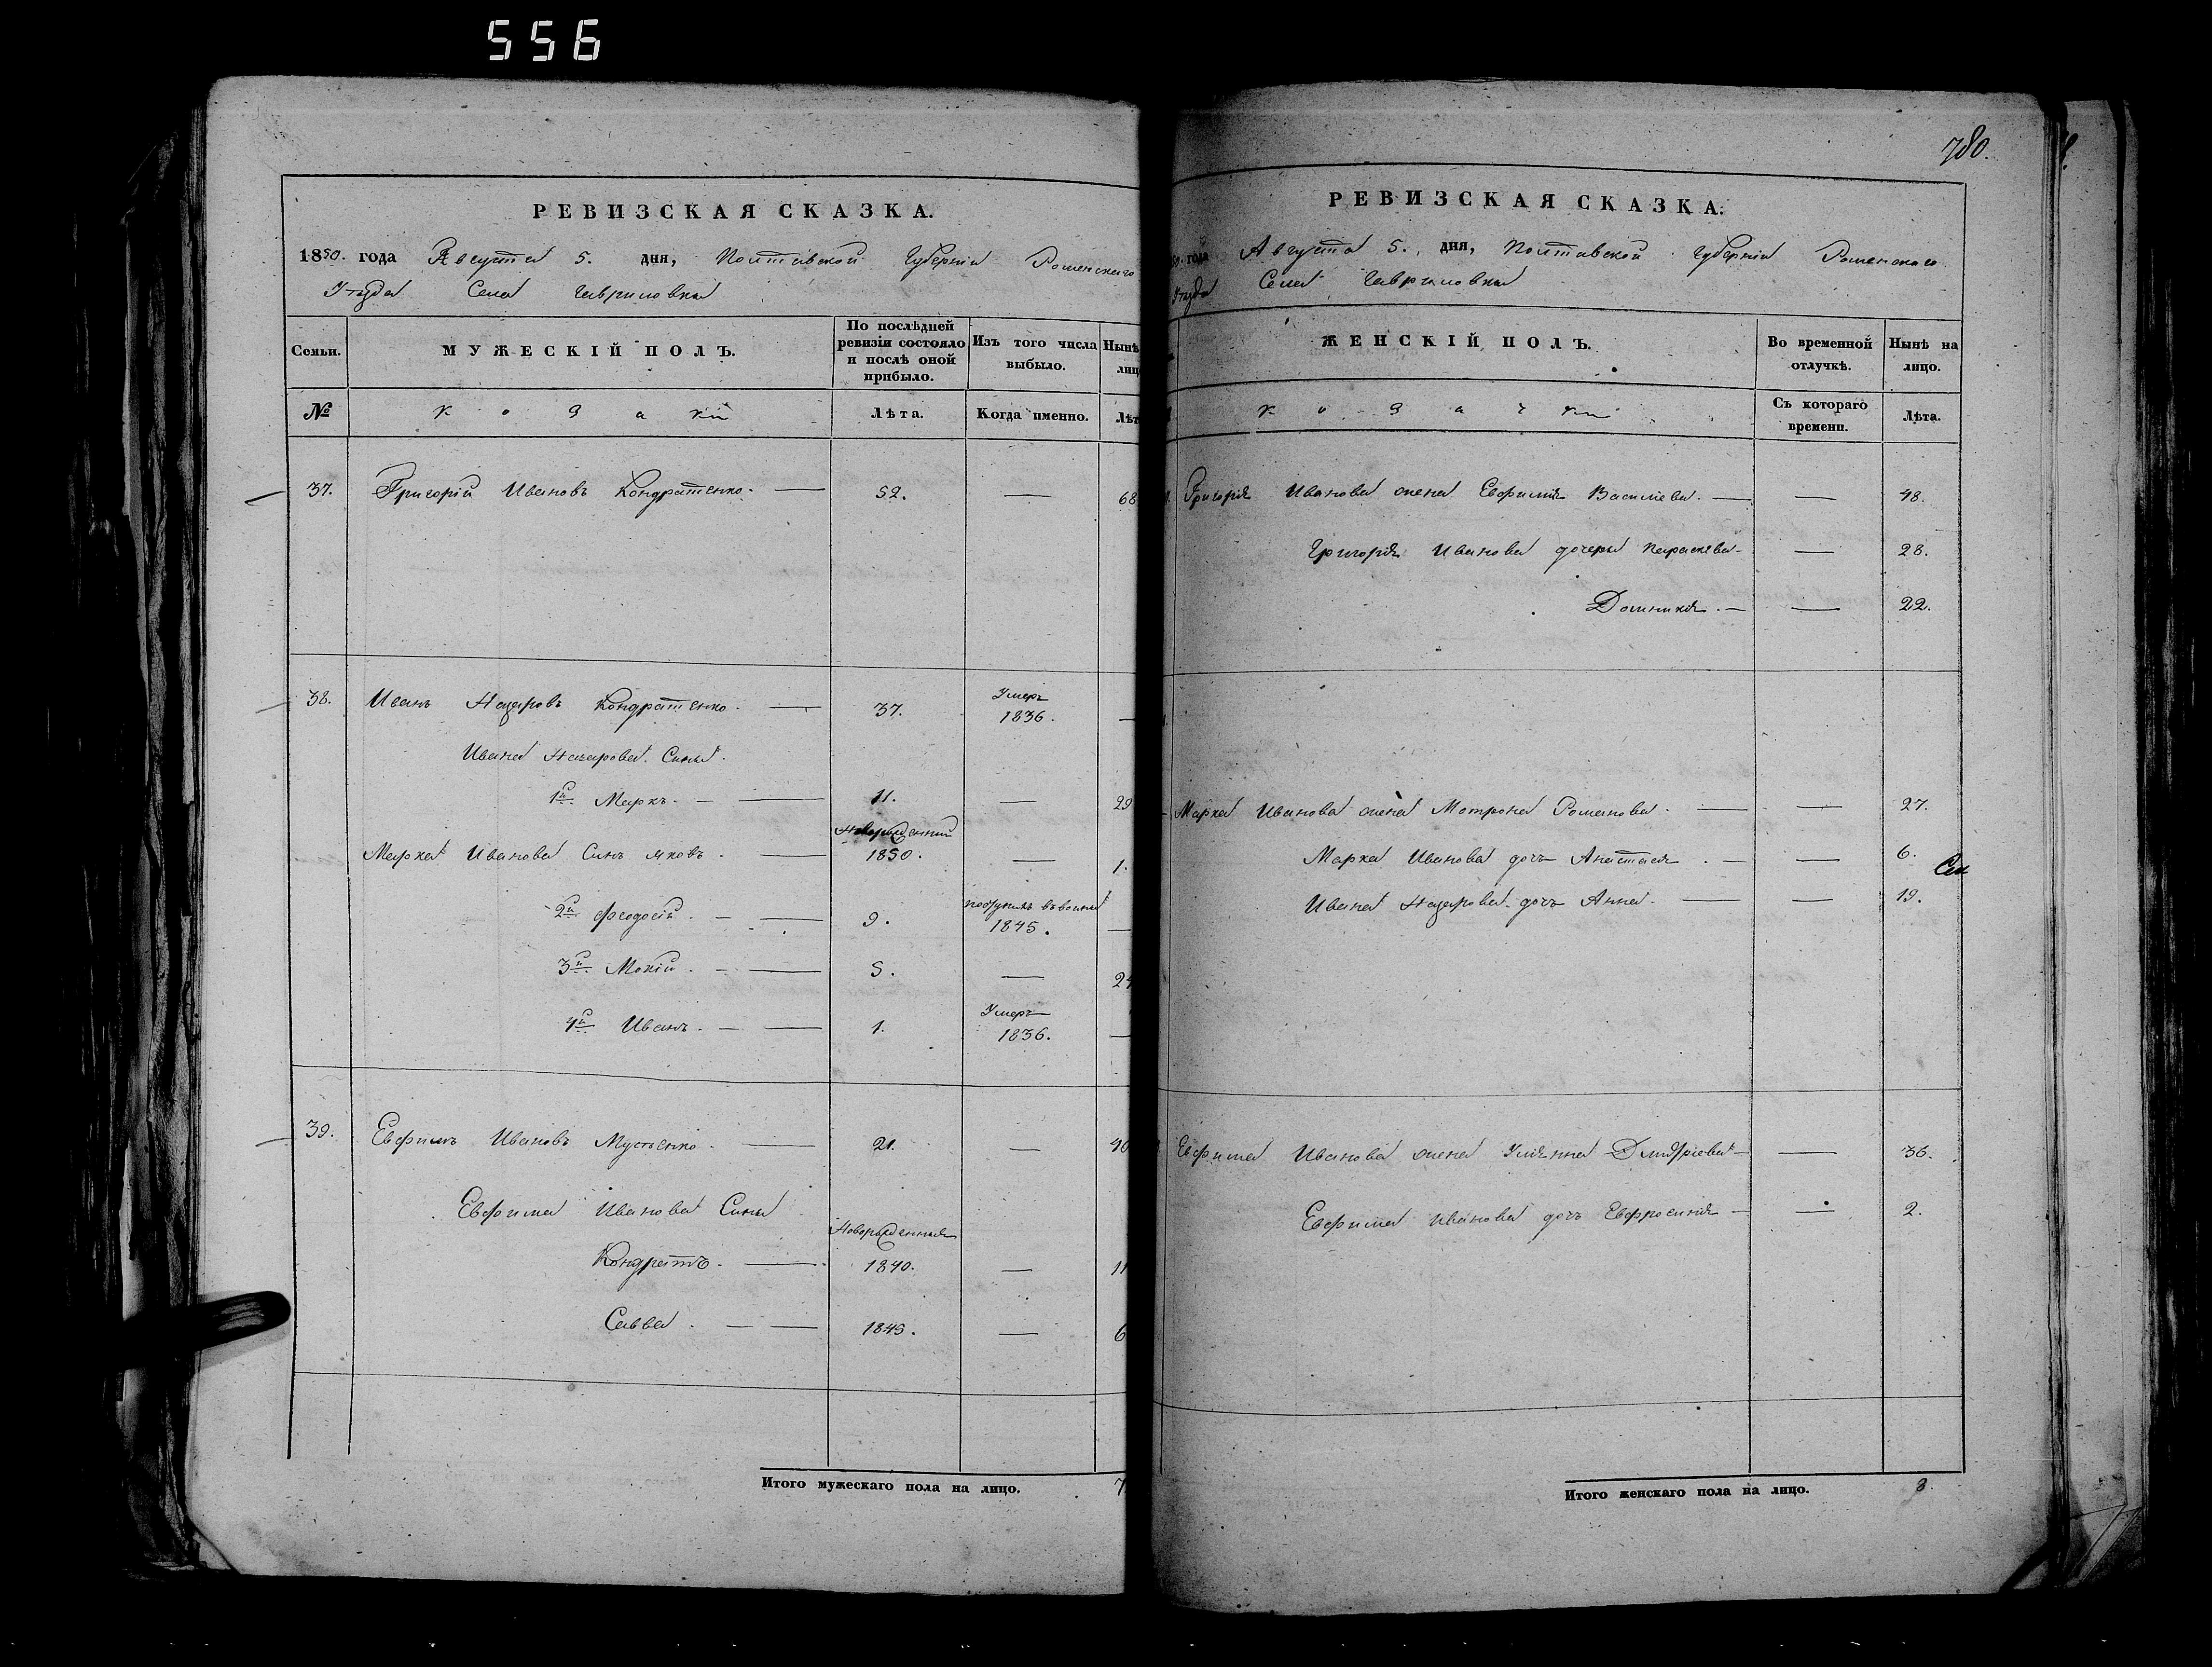 556
РЕВИЗСКАЯ СКАЗКА.
1850. года Августа 5. дня, Полтавской Губерніи Роменскаго
Уѣзда Села Гавриловки
Семьи.
МУЖЕСКІЙ ПОЛЪ.
По послѣдней
ревизіи состояло
и послѣ оной
прибыло.
Изъ того числа
выбыло.
Нынѣ
лиц
№
Козаки
Лѣта.
Когда именно.
Лѣт
37. Григорій Ивановъ Кондратенко. — 52. — 68
38. Иванъ Назаровъ Кондратенко. — 37. Умеръ 1836. —
Ивана Назарова Сыны.
1й Маркъ. — 11. — 29
Марка Иванова Сынъ Яковъ. — Новорожденный 1850. — 1.
2й Феодосій. — 9. 1845. —
3й Мокій. — 5. — 24
4й Иванъ. — 1. Умеръ 1836. —
39. Евфимъ Ивановъ — 21. — 40
Евфима Иванова Сыны
Новорожденныя
Кондратъ. — 1840. — 11
Савва. — 1845. — 6
Итого мужескаго пола на лицо. 7
780.
РЕВИЗСКАЯ СКАЗКА.
50. года Августа 5. дня, Полтавской Губерніи Роменскаго
Уѣзда Села Гавриловки
ЖЕНСКІЙ ПОЛЪ.
Во временной
отлучкѣ.
Нынѣ на
лицо.
Козачки
Съ котораго
времени.
Лѣта.
Григорія Иванова жена Евфимія Васильева. — — 48.
Григорія Иванова дочери Параскева — — 28.
Домникія. — — 22.
Марка Иванова жена Мотрона Романова. — — 27.
Марка Иванова дочь Анастасія. — — 6.
Ивана Назарова дочь Анна. — — 19.
Евфима Иванова жена Уліянна Дмитріева — — 36.
Евфима Иванова дочь Евфросинія — — 2.
Итого женскаго пола на лицо. 8.